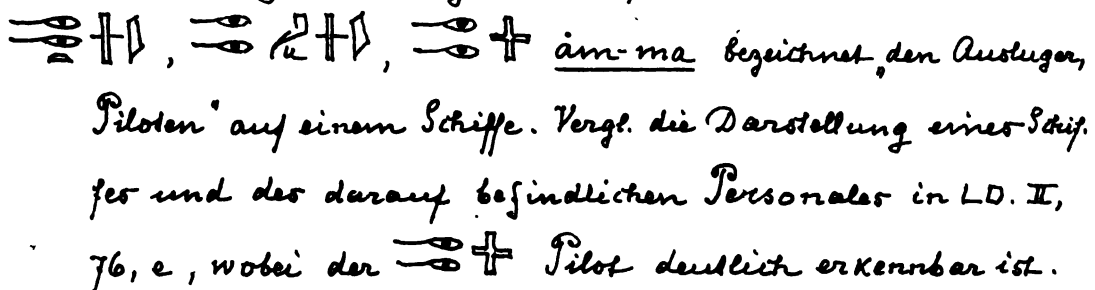 , , åm-ma bezeichnet „den Ausluger,
Piloten“ auf einem Schiffe. Vergl. die Darstellung eines Schif-
fes und des darauf befindlichen Personales in LD. II,
76, e, wobei der Pilot deutlich erkennbar ist.